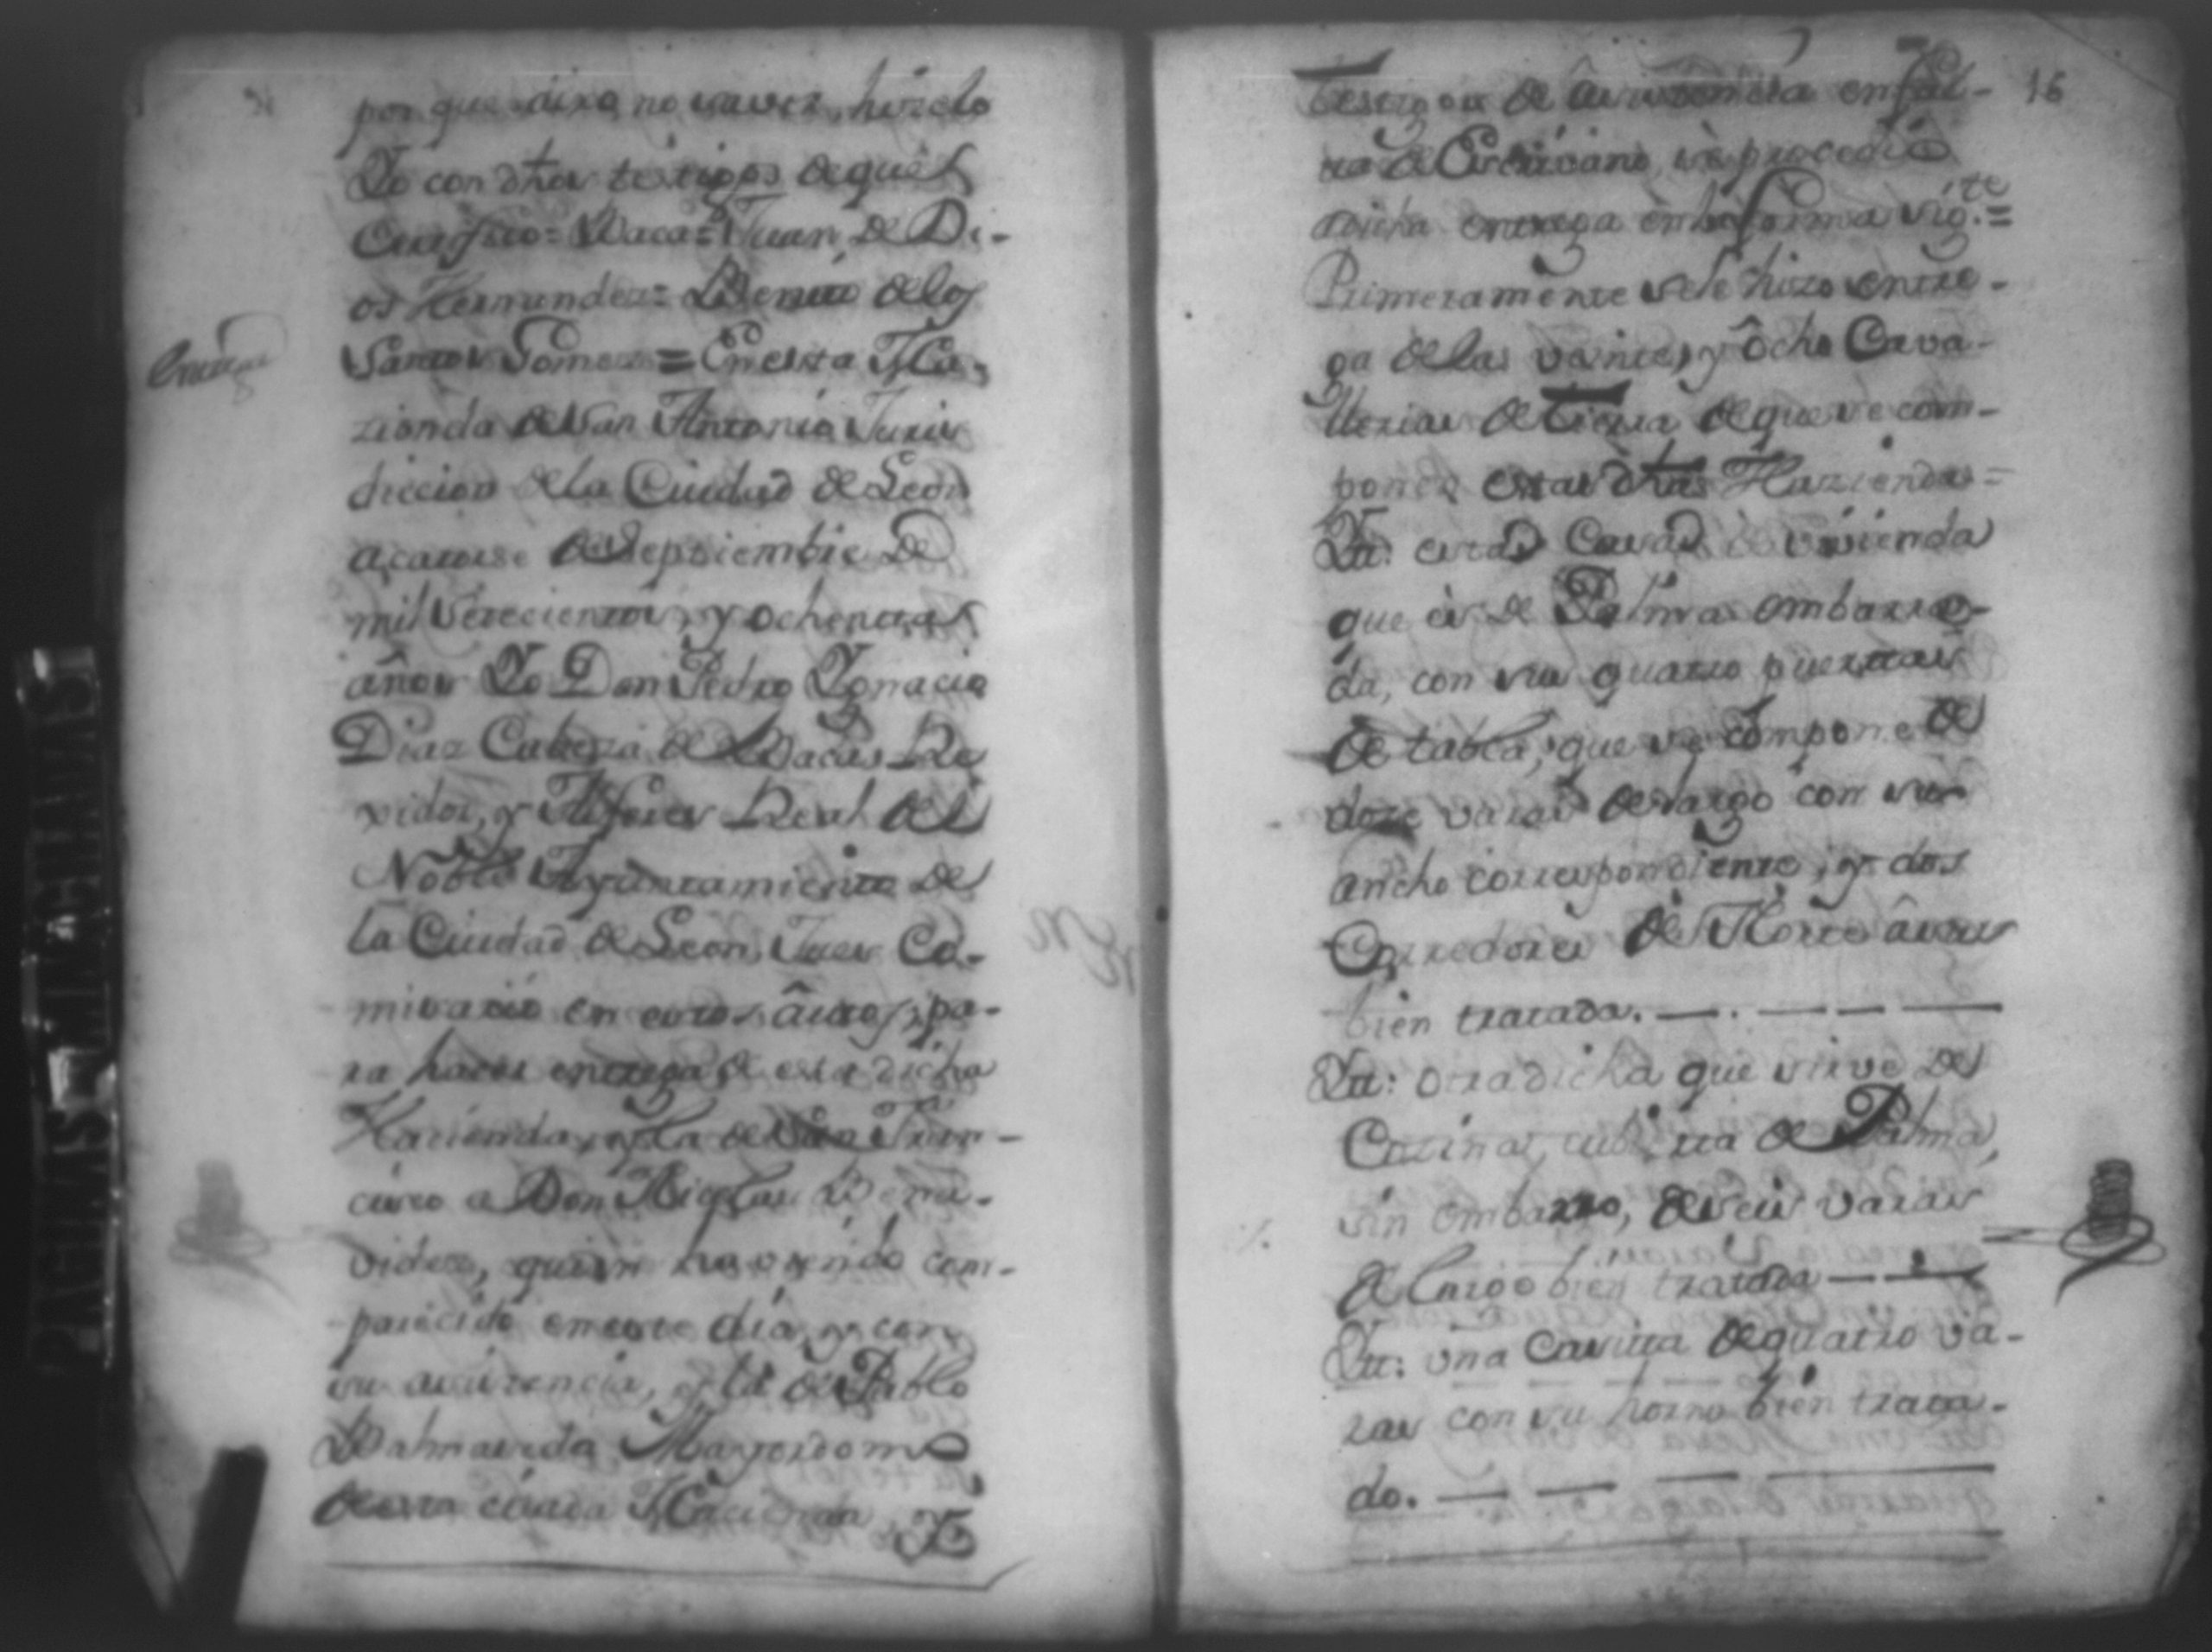 por que dixo no saver, hizelo
Yo con dhos testigos de que
Certifico = Vaca = Juan de Di-
os Hernandez = Benito de los
Santos Gomez = En esta Ha-
Entrega
zienda de San Antonio Juris
diccion de la Ciudad de Leon
a catorse de Septiembre de
mil setecientos, y ochenta
años Yo Don Pedro Ygnacio
Diaz Cabeza de Baca, Re
xidor, y Alferes Real del
Noble Ayuntamiento de
la Ciudad de Leon, Jues Co-
misario en estos autos, pa-
ra hacer entrega de esta dicha
Hacienda, y la de San Fran-
cisco a Don Nicolas Bena-
videz, quien haviendo com-
parecido en este dia, y con
su asistencia, y la de Pablo
Balmaseda Mayordomo
de esta citada Hacienda, y
15
testigos de asistencia en fal-
ta de Escrivano, se procedio
a dicha entrega en la forma sig.te =
Primeramente se le hizo entre-
ga de las veinte, y ocho Cava-
llerias de tierra de que se com-
ponen estas dhas Haziendas =
Ytt: esta Casa de vivienda
que es de Palma embarra-
da, con sus quatro puertas
de tabla, que se compone de
doze varas de largo con su
ancho correspondiente, y dos
Corredores de Norte a sur
bien tratada. — . — — —
Ytt: otra dicha que sirve de
Cozina, cubierta de Palma,
sin embarro, de seis varas
de largo bien tratada — —
Ytt: una casita de quatro va-
ras con su horno bien trata-
do. — — — —